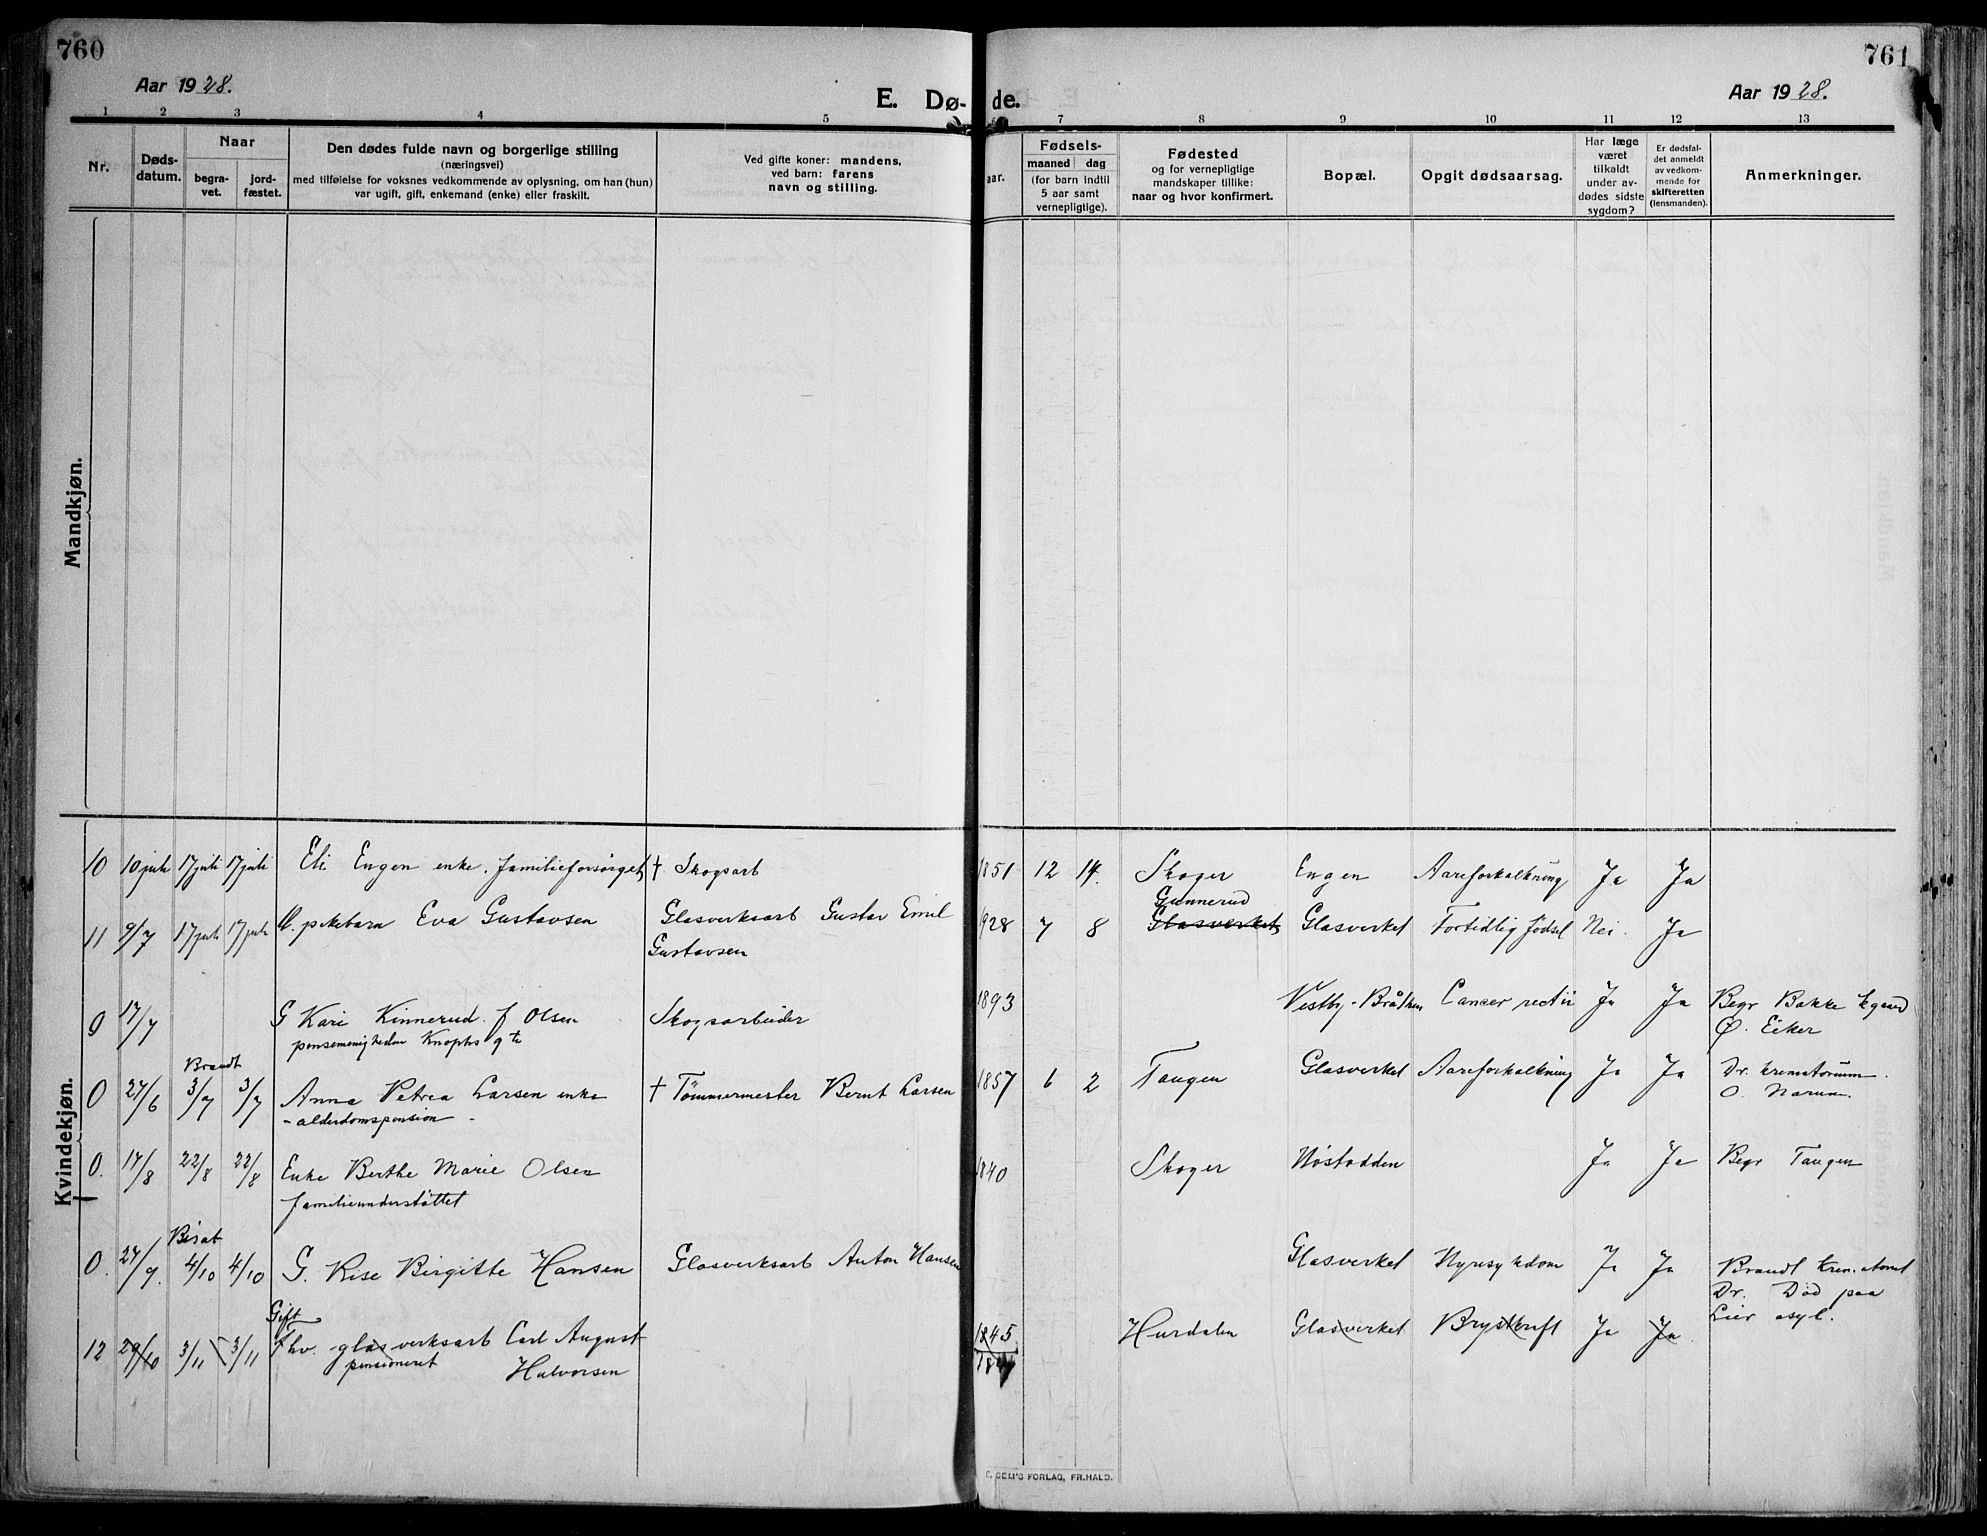 760
761
Aar 1928.
E. Dø- de.
Aar 1928.
1 2 3 4 5 7 8 9 10 11 12 13
Nr.
Døds-
datum.
Naar
begra-
vet.
jord-
fæstet.
Den dødes fulde navn og borgerlige stilling
(næringsvei)
med tilføielse for voksnes vedkommende av oplysning, om han (hun)
var ugift, gift, enkemand (enke) eller fraskilt.
Ved gifte koner: mandens,
ved barn: farens
navn og stilling.
aar.
Fødsels-
maaned dag
(for barn indtil
5 aar samt
vernepligtige).
Fødested
og for vernepligtige
mandskaper tillike:
naar og hvor konfirmert.
Bopæl.
Opgit dødsaarsag.
Har læge
været
tilkaldt
under av-
dødes sidste
sygdom?
Er dødsfal-
det anmeldt
av vedkom-
mende for
skifteretten
(lensmanden).
Anmerkninger.
Mandkjøn.
Kvindekjøn.
10 10 juli 17 juli 17 juli Eli Engen enke. familieforsørget † Skogsarb 1851 12 14. Skoger Engen Aareforkalkning Ja Ja
Gunnerud
11 9/7 17 juli 17 juli pikebarn Eva Gustavsen Glasverksarb Gustav Emil 928 7 8 Glasverket Glasverket Fortidlig fødsel Nei. Ja
Gustavsen
0 17/7 G Kari Kinnerud. f Olsen Skogsarbeider 1893 Vestby-Bråthen Cancer recti Ja Ja Begr Bakke
Knophs gt Ø. Eiker
Brandt
0 27/6 3/7 3/7 Anna Petrea Larsen enke † Tømmermester Bernt Larsen 1857 6 2 Tangen Glasverket Aareforkalkning Ja Ja Dr. krematorium.
- alderdomspension -
0. 17/8 22/8 22/8 Enke Berthe Marie Olsen 1840 Skoger Nøstodden Ja Ja Begr Tangen
familieunderstøttet
Bisat
0. 27/9. 4/10 4/10 G. Rise Birgitte Hansen Glasverksarb Anton Hansen Glasverket Nyresykdom Ja Ja Brandt
Dr. Død paa
Lier asyl.
Gift
12 29/10 3/11 3/11 Fhv. glasverksarb Carl August 1845 Hurdalen Glasverket Brystkreft Ja Ja
pensioneret Halvorsen
SEM'S FORLAG, FR.HALD.